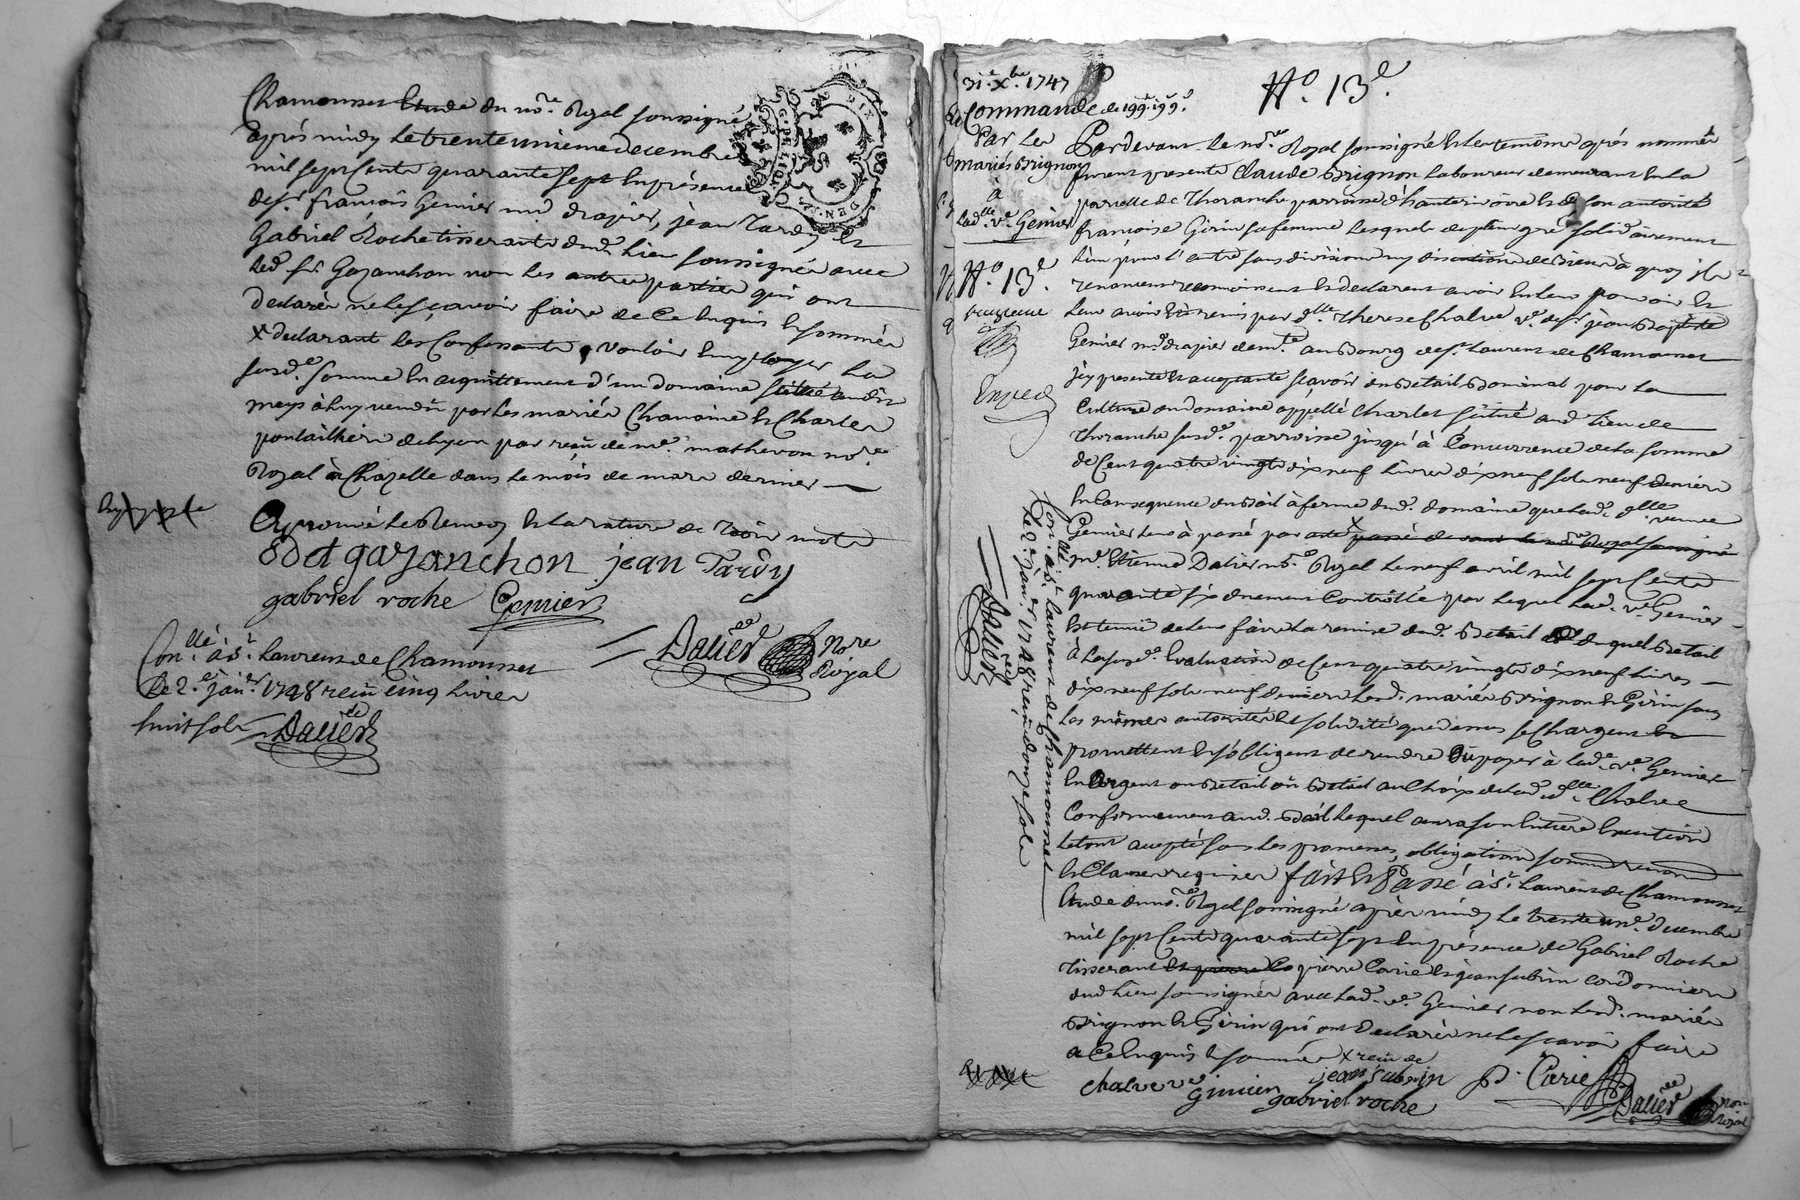 Chamousset Etude du no.re Royal soussigné
après midy le trente unieme decembre
mil sept cents quarante sept en présence
de s.r francois Genier md drapier, jean Tardy et
Gabriel Roche tisserants dud. lieu soussignés avec
led. s.r Gazanchon non les autres parties qui ont
declarés ne le sçavoir faire de ce enquis et sommés
x declarant les Confessants vouloir employer la
susd.e somme en acquittement d'un domaine scitué audit
meys à luy vendû par les mariés Chanoine et Charles
par reçu de m.e mathevon no.re
Royal à Chazelle dans le mois de mars dernier
Approuvé le Renvoy et la rature de trois mots
odet gazanchon jean Tardy
gabriel roche Genier
Dalier no.re Royal
Con.llé à s.t Laurens de Chamousset
le 2.e jan.er 1748 reçu cinq livres
huit sols Dalier
G. DE LION
31.e X.bre 1747
Commande de 199.l 19.s 9.d
Par les
mariés Brignon
à
lad.lle v.e Genier
N.o 13.e
N.o 13.e
Pardevant le no.re Royal soussigné et les temoins après nommés
furent presents Claude Brignon laboureur demeurant en la
parcelle de Thoranche parroisse d'hauterivoire et de son autorité
françoise Girin sa femme lesquels de plein gré solidairement
l'un pour l'autre sans division ny discution de biens à quoy ils
renoncent reconnoissent et declarent avoir en leur pouvoir et
leur avoir été remis par d.lle Therese Chalve v.e de s.r jean Baptiste
Genier m.d drapier demt.e au Bourg de s.t Laurent de Chamousset
icy presente et acceptante sçavoir en Betail Bominal pour la
Culture du domaine appellé Charlet scitué aud. lieu de
Thoranche susd.e parroisse jusqu'à Concurrence de la somme
de Cent quatre vingts dix neuf livres dix neuf sols neuf deniers
en Consequence du Bail à ferme dud. domaine que lad. d.lle veuve
Genier leur à passé par acte x passé devant le no.re Royal soussigné
m.e Etienne Dalier no.re Royal le neuf avril mil sept Cents
quarante six duement Controllé par lequel lad. v.e Genier
est tenuë de leur faire la remise dud. Betail duquel Betail
à la susd.e Evaluation de Cent quatre vingts dix neuf livres
dix neuf sols neuf deniers lesd. mariés Brignon et Girin sous
les mêmes autorités et solidité que dessus se chargent et
promettent et s'obligent de rendre ou payer à lad.e v.e Genier
en Argent ou Betail au Choix de lad. d.lle Chalve
Conformement aud. Bail lequel aura son entiere Execution
le tout accepté sous les promesses, obligations soumissions
et Clauses requises fait et Passé à s.t Laurens de Chamousset
Etude du no.re Royal soussigné après midy le trente un.e Decembre
mil sept Cents quarante sept en présence de Gabriel Roche
Tisserant et pierre Ca pierre Carie et jean subrin cordonniers
dud. lieu soussignés avec lad. v.e Genier non lesd. mariés
Brignon et Girin qui ont Declarés ne le sçavoir faire
de Ce enquis et sommés x reçu de
chalve v.e Ginier jean subrin P. Carie
gabriel roche Dalier no.re Royal
Con.llé à s.t Laurent de Chamousset
le 2.e jan.er 1748 reçu douze sols
Dalier